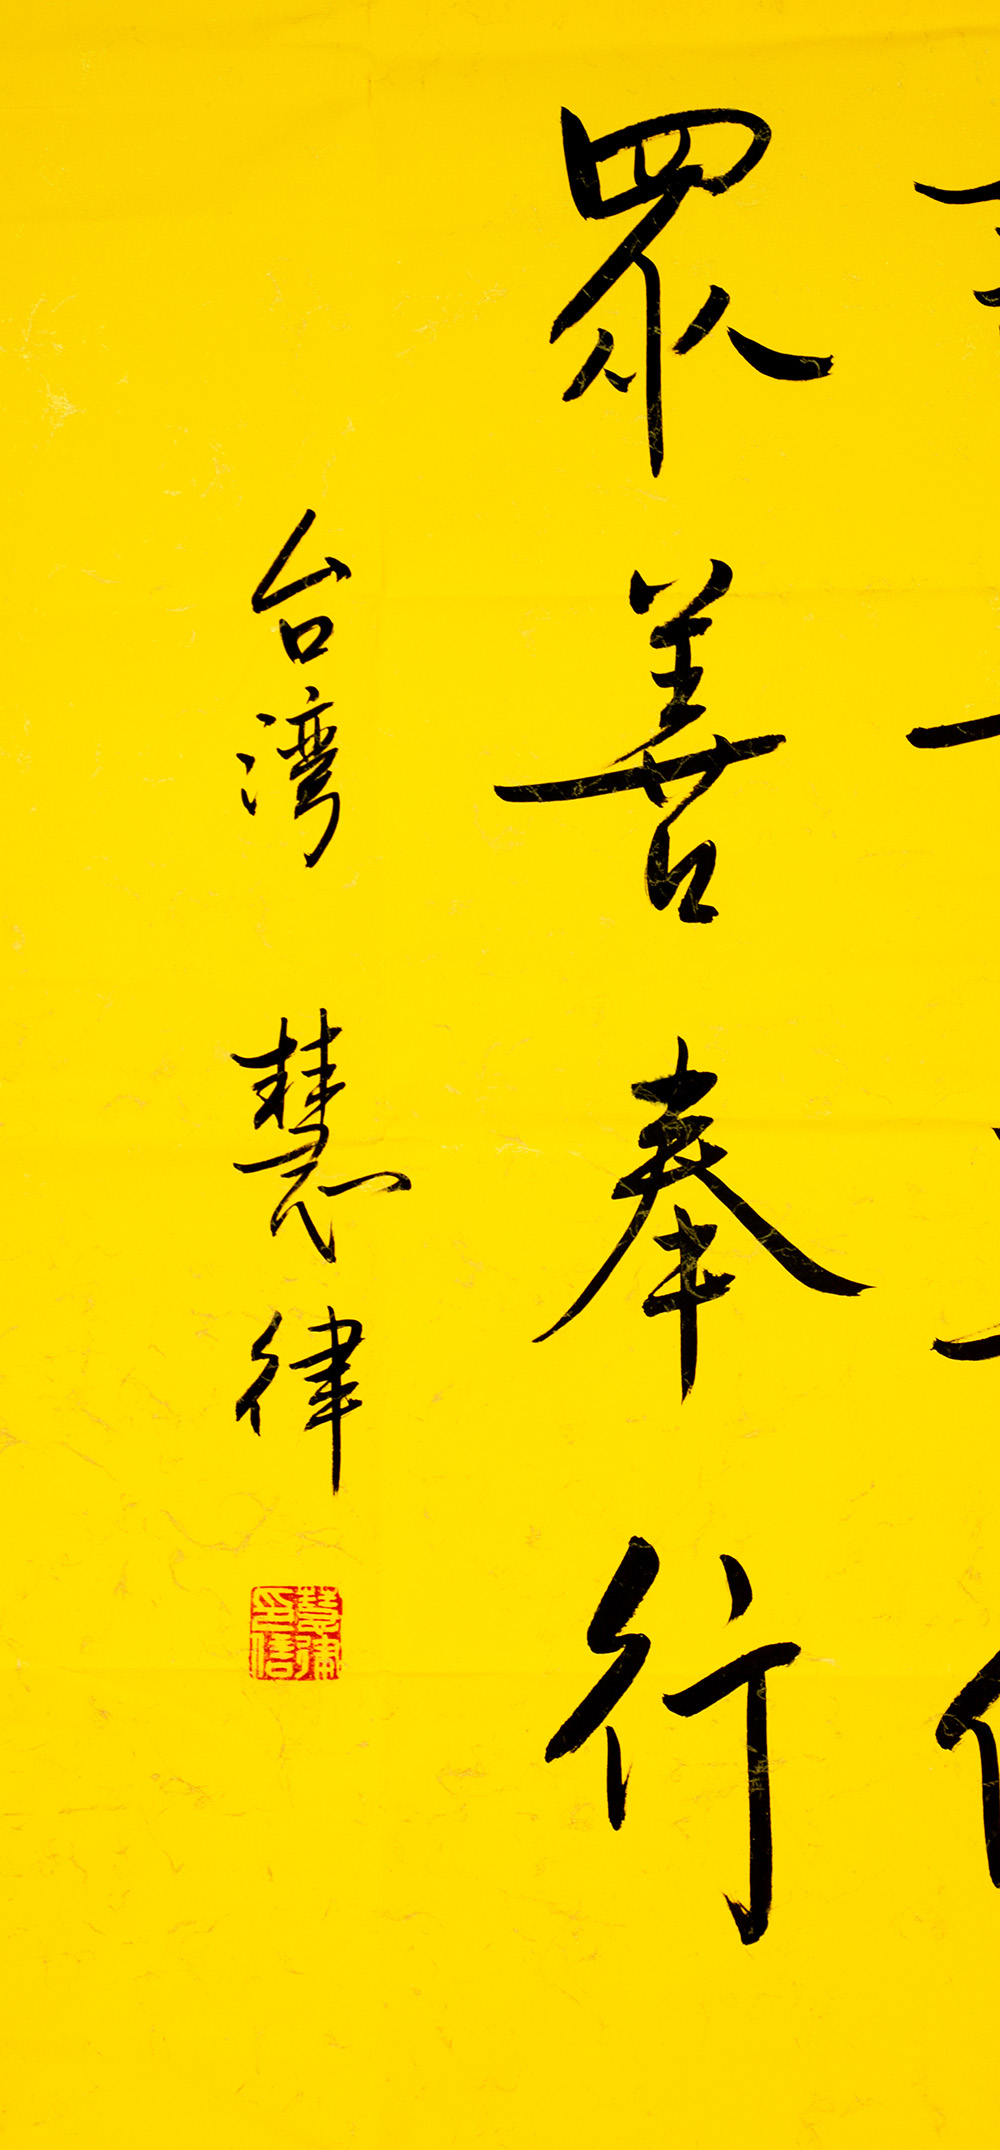 眾善奉行
台湾 慧律
慧律印信